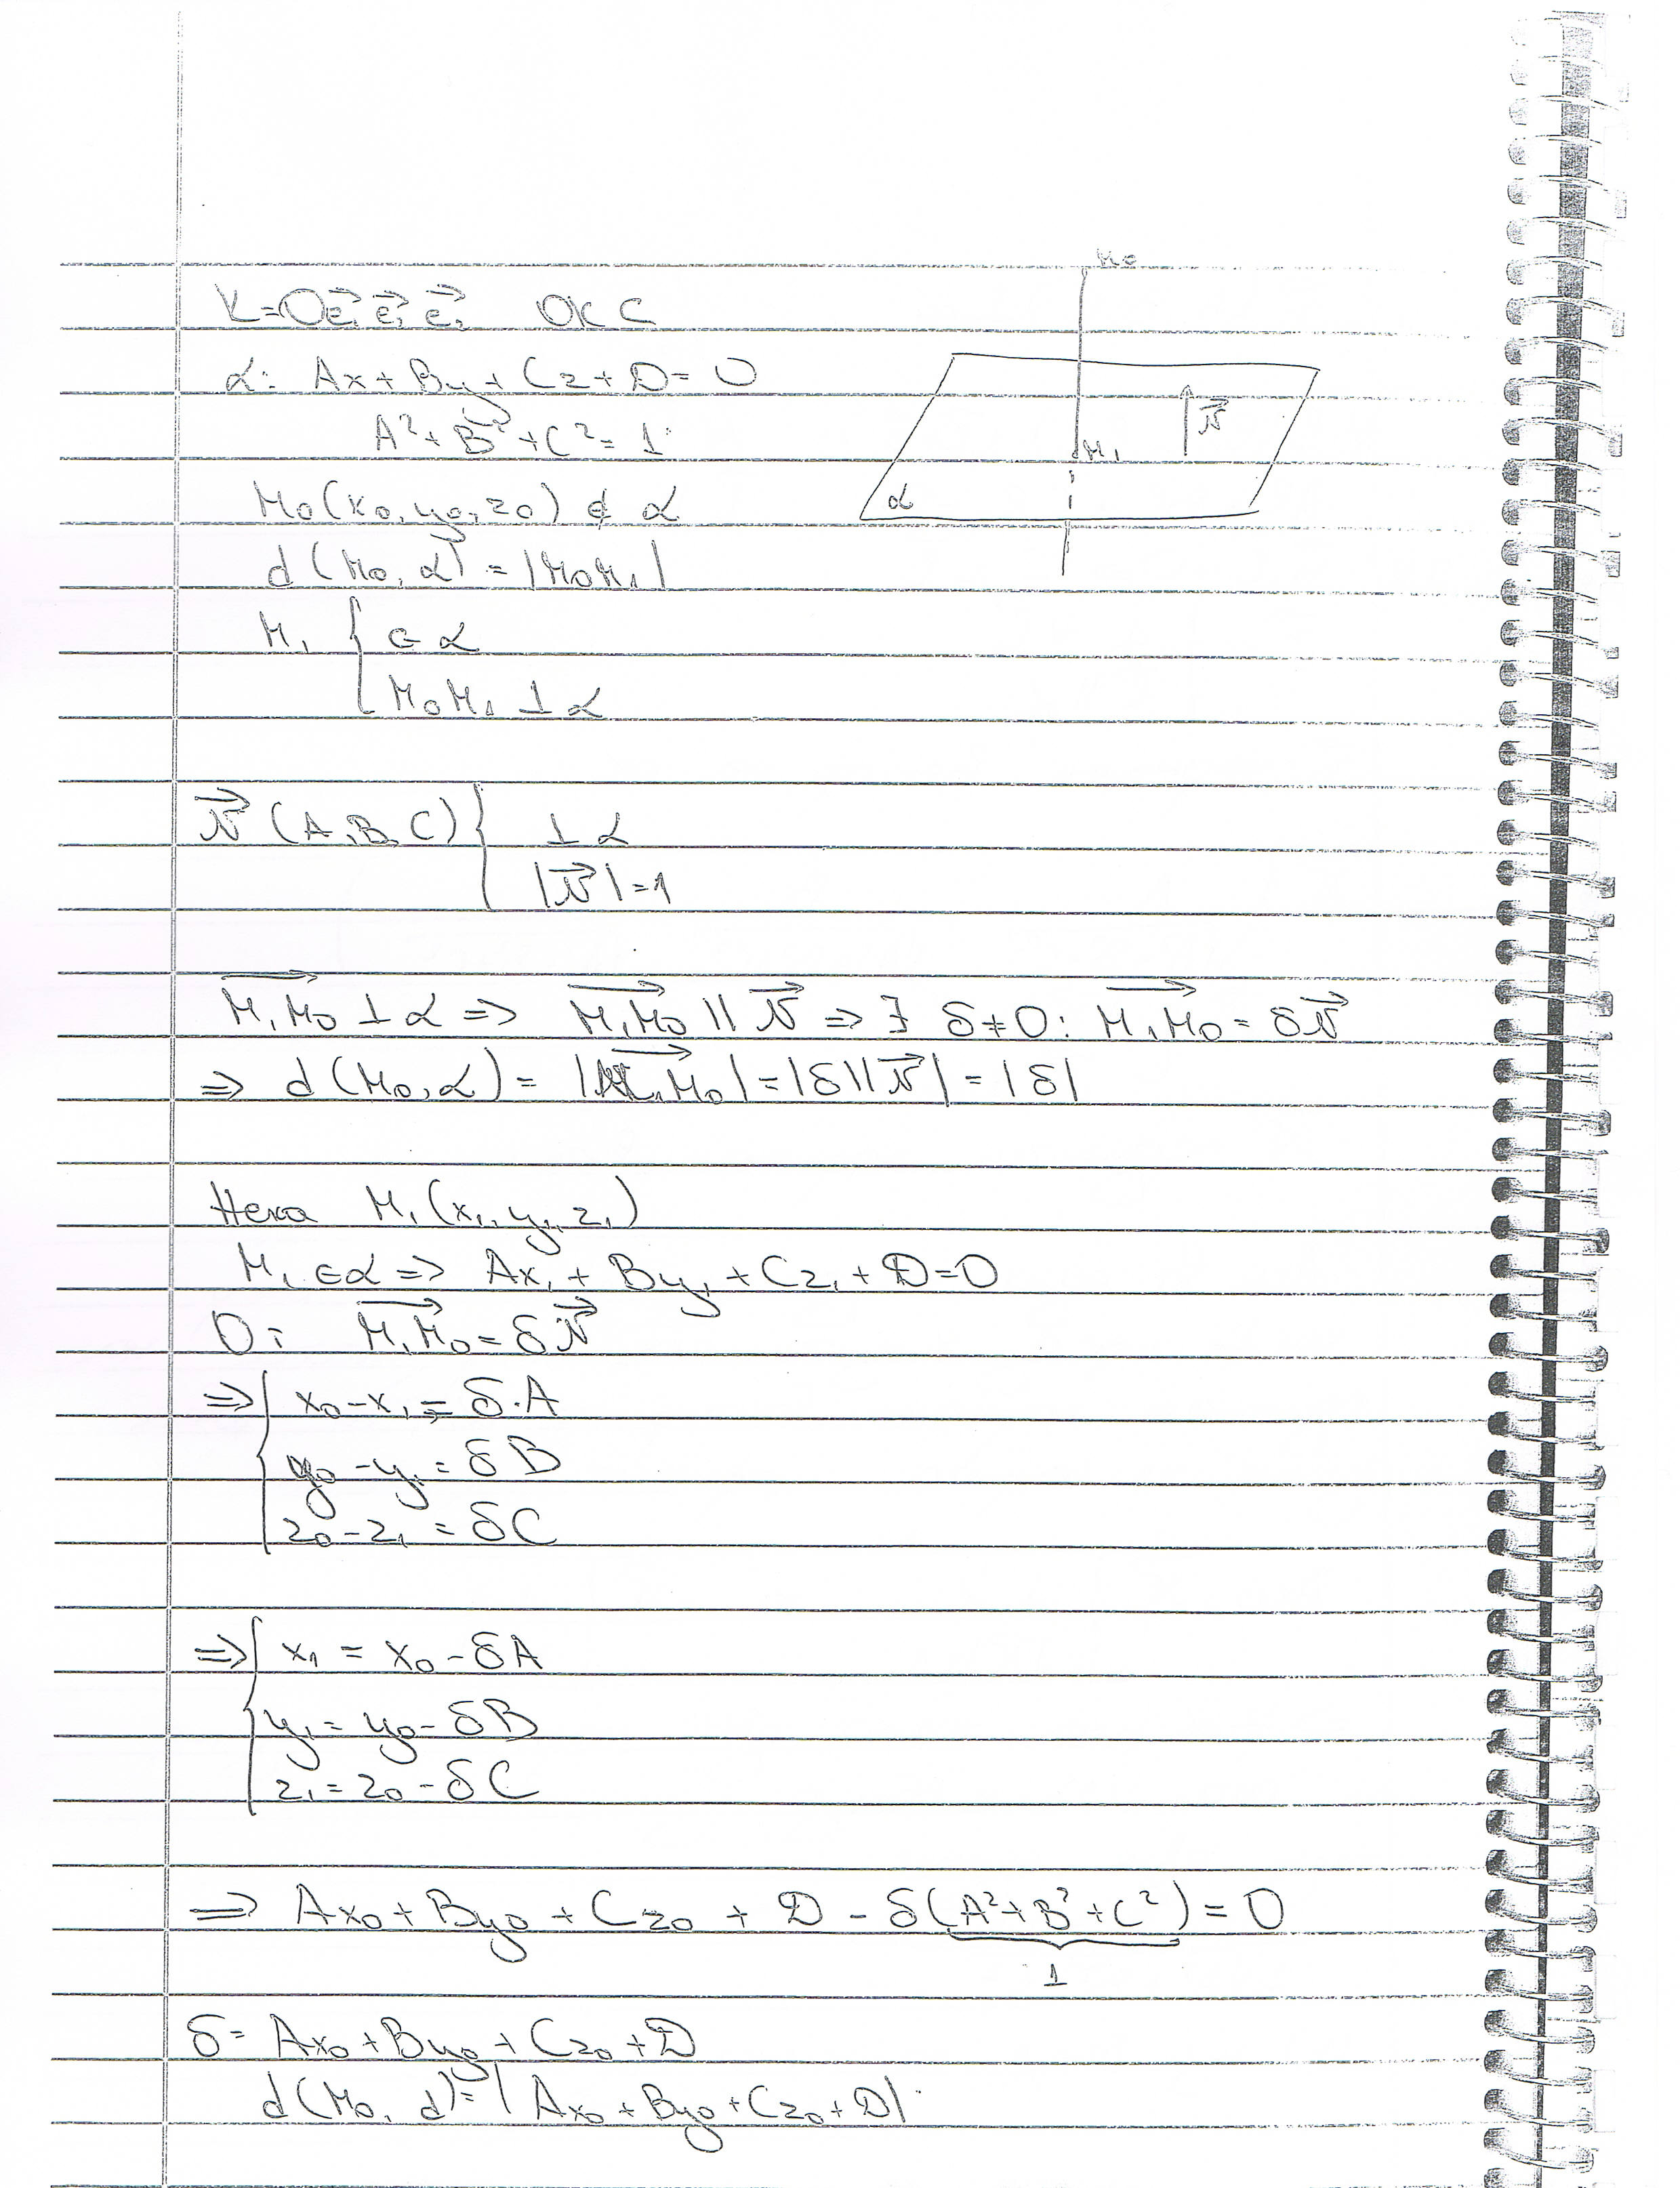 K=Oe⃗₁e⃗₂e⃗₃ ОКС
α: Ax + By + Cz + D = 0
A² + B² + C² = 1
M₀(x₀, y₀, z₀) ∉ α
d(M₀, α) = |M₀M₁|
M₁ { ∈ α
M₀M₁ ⊥ α
M₀
N⃗
M₁
α
N⃗ (A, B, C) { ⊥ α
|N⃗| = 1
M₁M₀⃗ ⊥ α => M₁M₀⃗ || N⃗ => ∃ δ ≠ 0: M₁M₀⃗ = δN⃗
=> d(M₀, α) = |M₁M₀⃗| = |δ||N⃗| = |δ|
Нека M₁(x₁, y₁, z₁)
M₁ ∈ α => Ax₁ + By₁ + Cz₁ + D = 0
От M₁M₀⃗ = δN⃗
=> { x₀ - x₁ = δ.A
y₀ - y₁ = δB
z₀ - z₁ = δC
=> { x₁ = x₀ - δA
y₁ = y₀ - δB
z₁ = z₀ - δC
=> Ax₀ + By₀ + Cz₀ + D - δ(A² + B² + C²) = 0
1
δ = Ax₀ + By₀ + Cz₀ + D
d(M₀, α) = |Ax₀ + By₀ + Cz₀ + D|